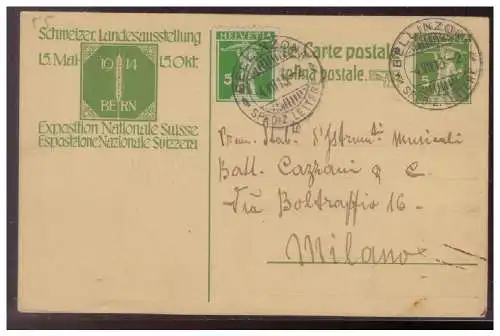 Schweizer. Landesausstellung
15. Mai 15. Okt.
1914
BERN
Exposition Nationale Suisse
Esposizione Nazionale Svizzera
HELVETIA
Carte postale.
postale.
BELLINZONA
SPEDIZ. LETTERE
5
Prem. Stab. d'Istrum. Musicali
Batt. Cazzani & C.
Via Boltraffio 16 -
Milano